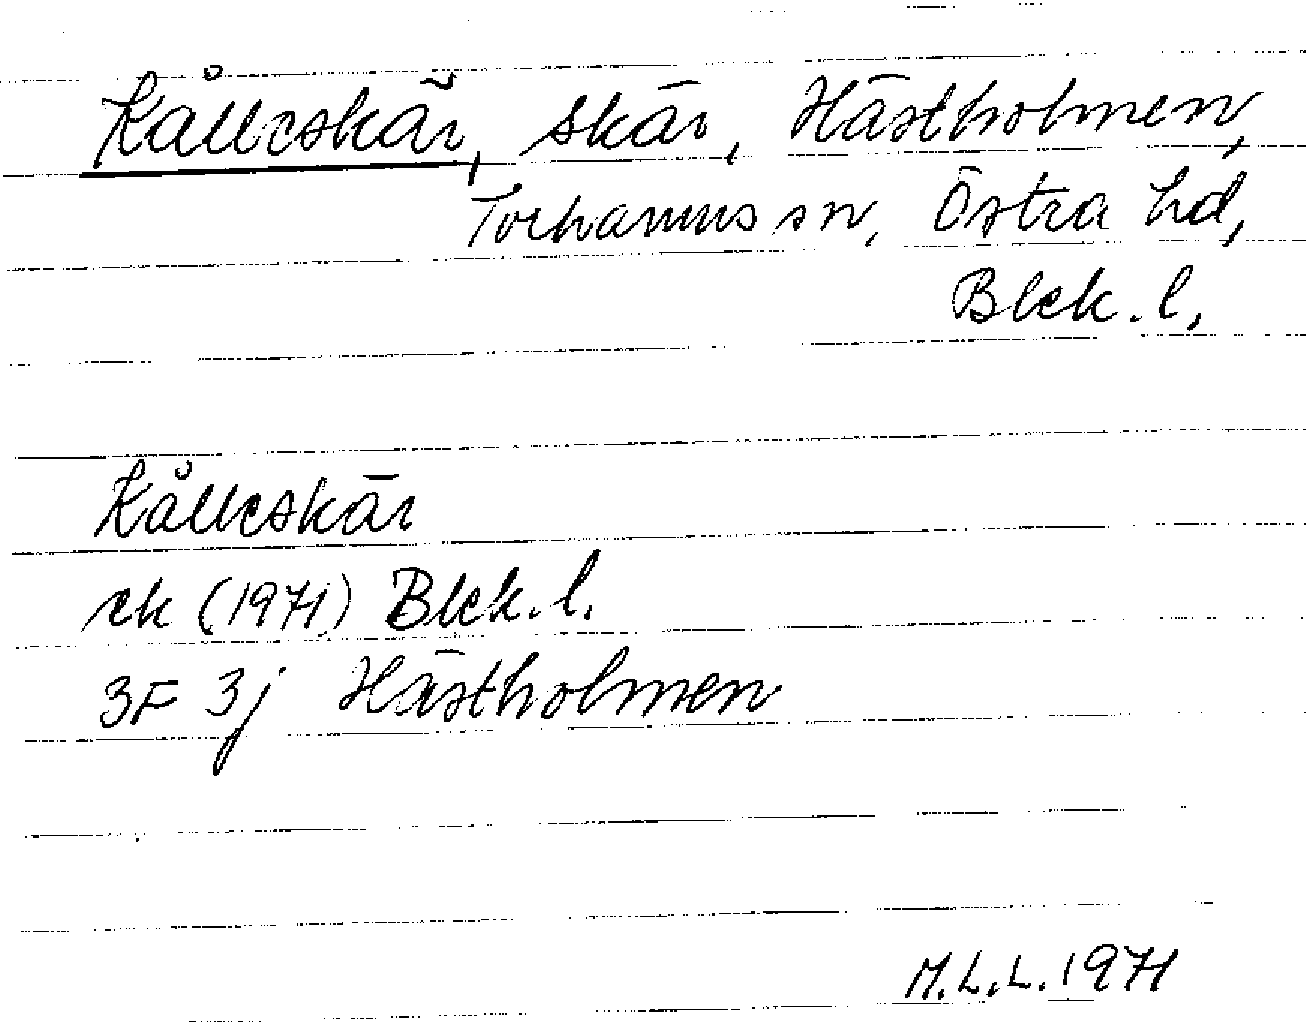 Kålleskär, skär, Hästholmen,
Torhamns sn, Östra hd,
Blek. l,
Kålleskär
ek (1971) Blek. l.
3F 3j Hästholmen
M.L.L. 1971